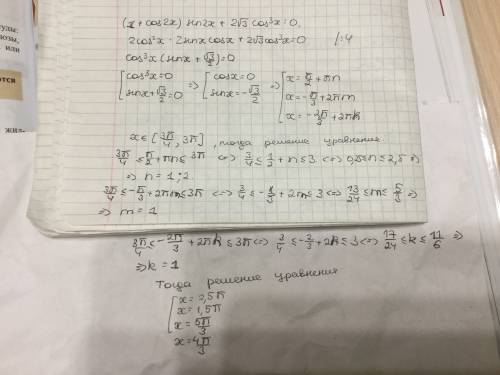 (x + cos2x) sin2x + 2√3 cos³x = 0,
2cos²x · 2sinx cosx + 2√3 cos³x = 0 |:4
cos³x (sinx + √3/2) = 0
[cos³x = 0; sinx + √3/2 = 0 ⇒ [cosx = 0; sinx = -√3/2 ⇒ [x = π/2 + πn; x = -π/3 + 2πm; x = -2π/3 + 2πk
x ∈ [3π/4, 3π], тогда решение уравнения
3π/4 ≤ π/2 + πn ≤ 3π ⇔ 3/4 ≤ 1/2 + n ≤ 3 ⇔ 0,25 ≤ n ≤ 2,5 ⇒
⇒ n = 1; 2
3π/4 ≤ -π/3 + 2πm ≤ 3π ⇔ 3/4 ≤ -1/3 + 2m ≤ 3 ⇔ 13/24 ≤ m ≤ 5/3 ⇒
⇒ m = 1
3π/4 ≤ -2π/3 + 2πk ≤ 3π ⇔ 3/4 ≤ -2/3 + 2k ≤ 3 ⇔ 17/24 ≤ k ≤ 11/6 ⇒
⇒ k = 1
Тогда решение уравнения
[x = 2,5π
x = 1,5π
x = 5π/3
x = 4π/3